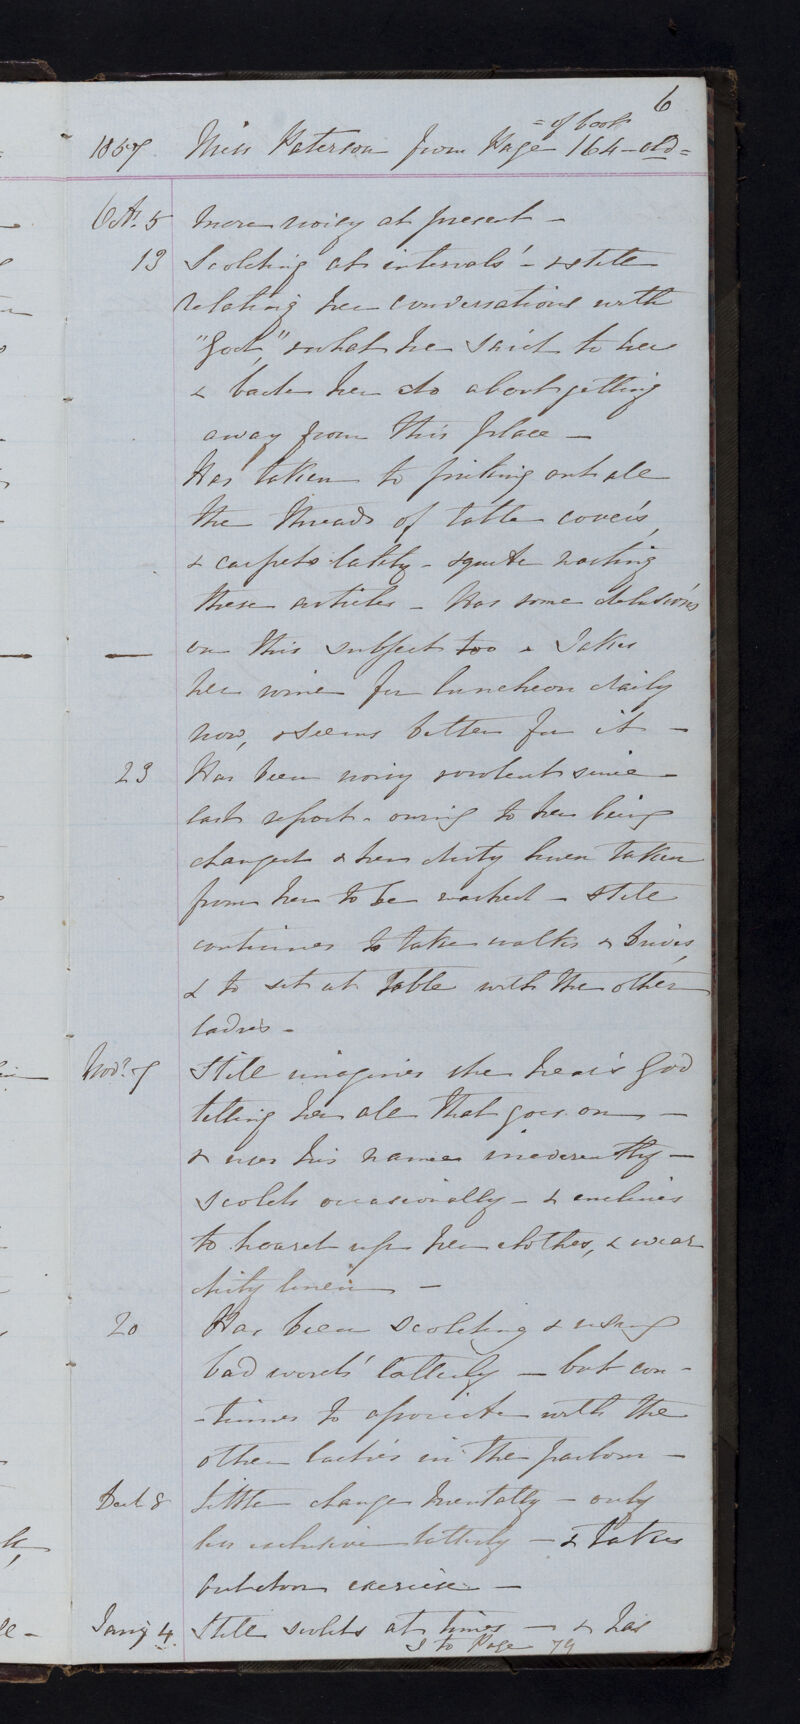 6
= of book
1857 Miss Paterson from Page 164 - old =
Oct. 5 More noisy at present -
13 Scolding at intervals - & still
relating her conversations with
"God," & what he said to her
& bade her do about getting
away from this place -
Has taken to picking out all
the threads of table covers,
& carpets lately - & quite wasting
these articles - has some delusions
on this subject too & Takes
her wine for luncheon daily
now, & seems better for it -
23 Has been noisy & violent since
last report - owing to her being
changed & her dirty linen taken
from her to be washed - still
continues to take walks & drives,
& to sit at table with the other
ladies -
Novr. 7 Still imagines she hears God
telling her all that goes on -
& uses his name irreverently -
scolds occasionally - & inclines
to hoard up her clothes, & wear
dirty linen -
20 Has been scolding & using
bad words latterly - but con-
-tinues to associate with the
other ladies in the parlour -
Dec 8 Little change mentally - only
less exclusive latterly - & takes
outdoor exercise -
Jany 4 Still scolds at times - & has
to Page 79